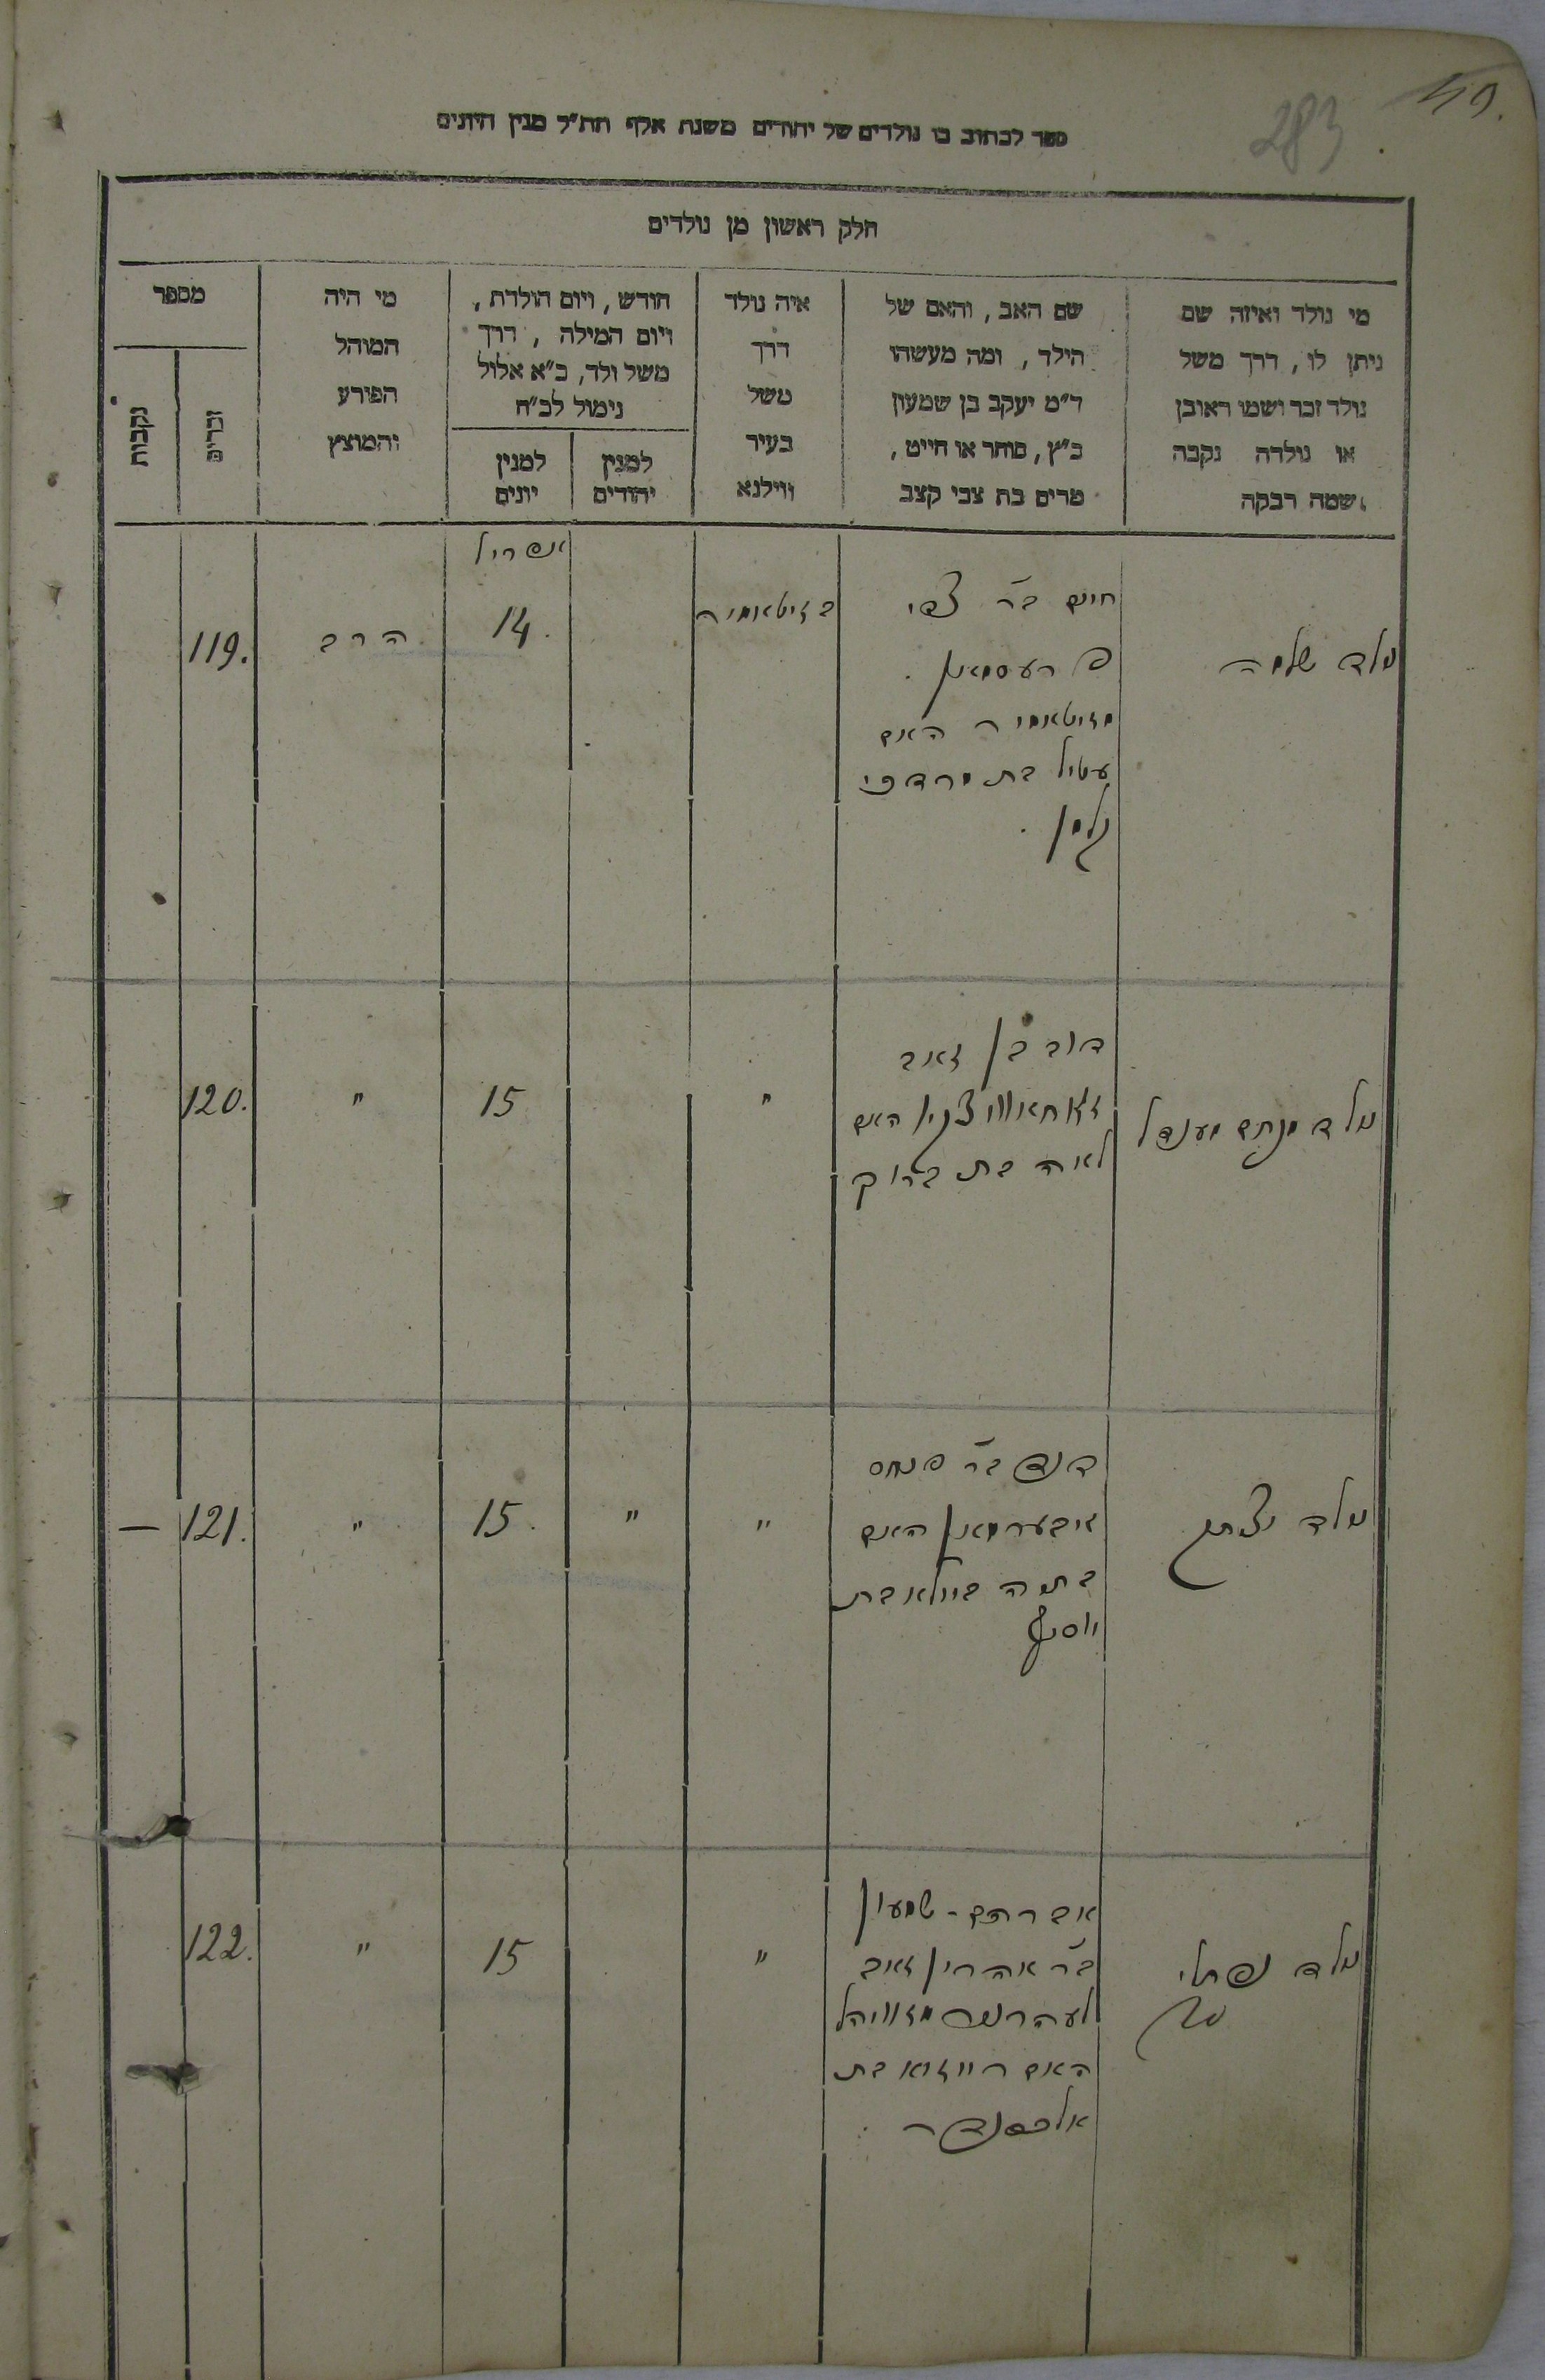 49.
283
ספר לכתוב בו נולדים של יהודים משנת אלף תת"ל מנין היונים
חלק ראשון מן נולדים
מי נולד ואיזה שם
ניתן לו, דרך משל
נולד זכר ושמו ראובן
או נולדה נקבה
ושמה רבקה
שם האב, והאם של
הילד, ומה מעשהו
ד"מ יעקב בן שמעון
כ"ץ, סוחר או חייט,
מרים בת צבי קצב
איה נולד
דרך
משל
בעיר
ווילנא
חודש, ויום הולדת,
ויום המילה, דרך
משל ולד, כ"א אלול
נימול לכ"ח
למנין
יהודים
למנין
יונים
מי היה
המוהל
הפורע
והמוצץ
מספר
זכרים
נקבות
נולד שלמה
חיים בר צבי
מזיטאמיר האם
עטיל בת מרדכי
בזיטאמיר
אפריל
14.
הרב
119.
נולד מנחם מענדל
דוב בן זאב
האם
לאה בת ברוך
"
15
"
120.
נולד יצחק
בר פנחס
האם
בת
יוסף
"
"
15.
"
121.
—
נולד נפתלי
אברהם - שמעון
בר אהרון זאב
האם רייזא בת
אלכסנדר
"
15
"
122.